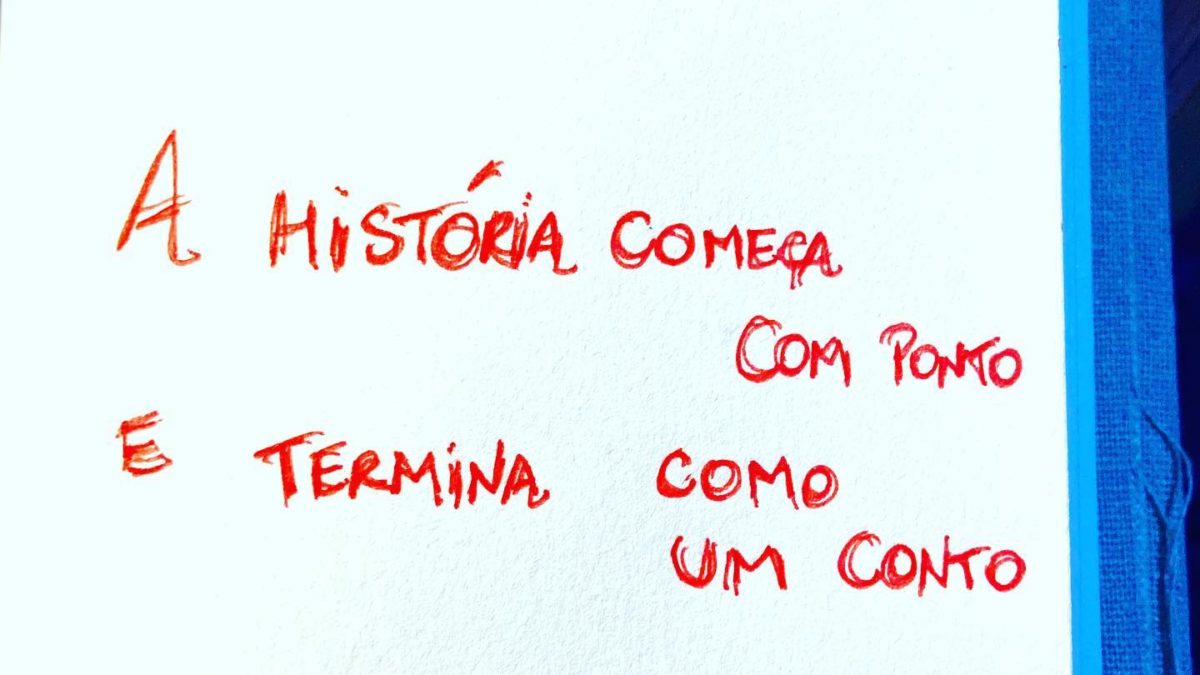 A HiSTÓRiA COMEÇA
COM PONTO
E TERMiNA COMO
UM CONTO